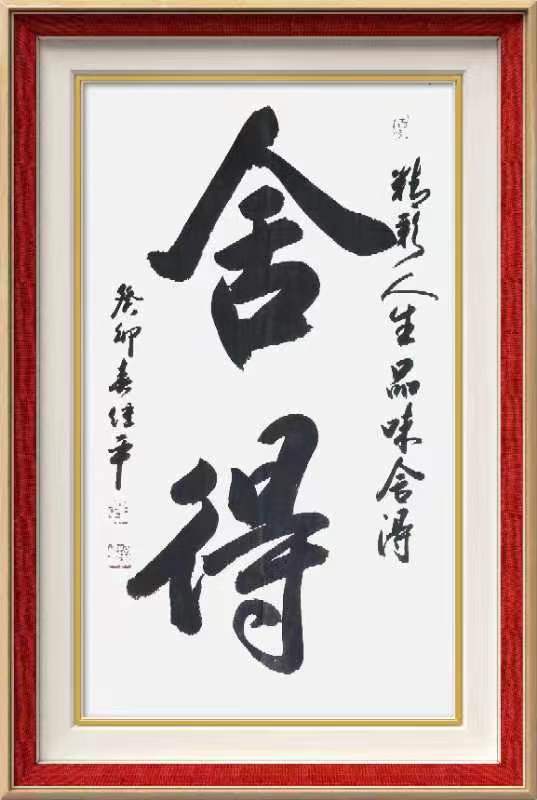 精彩人生品味舍得
舍得
癸卯春佳平